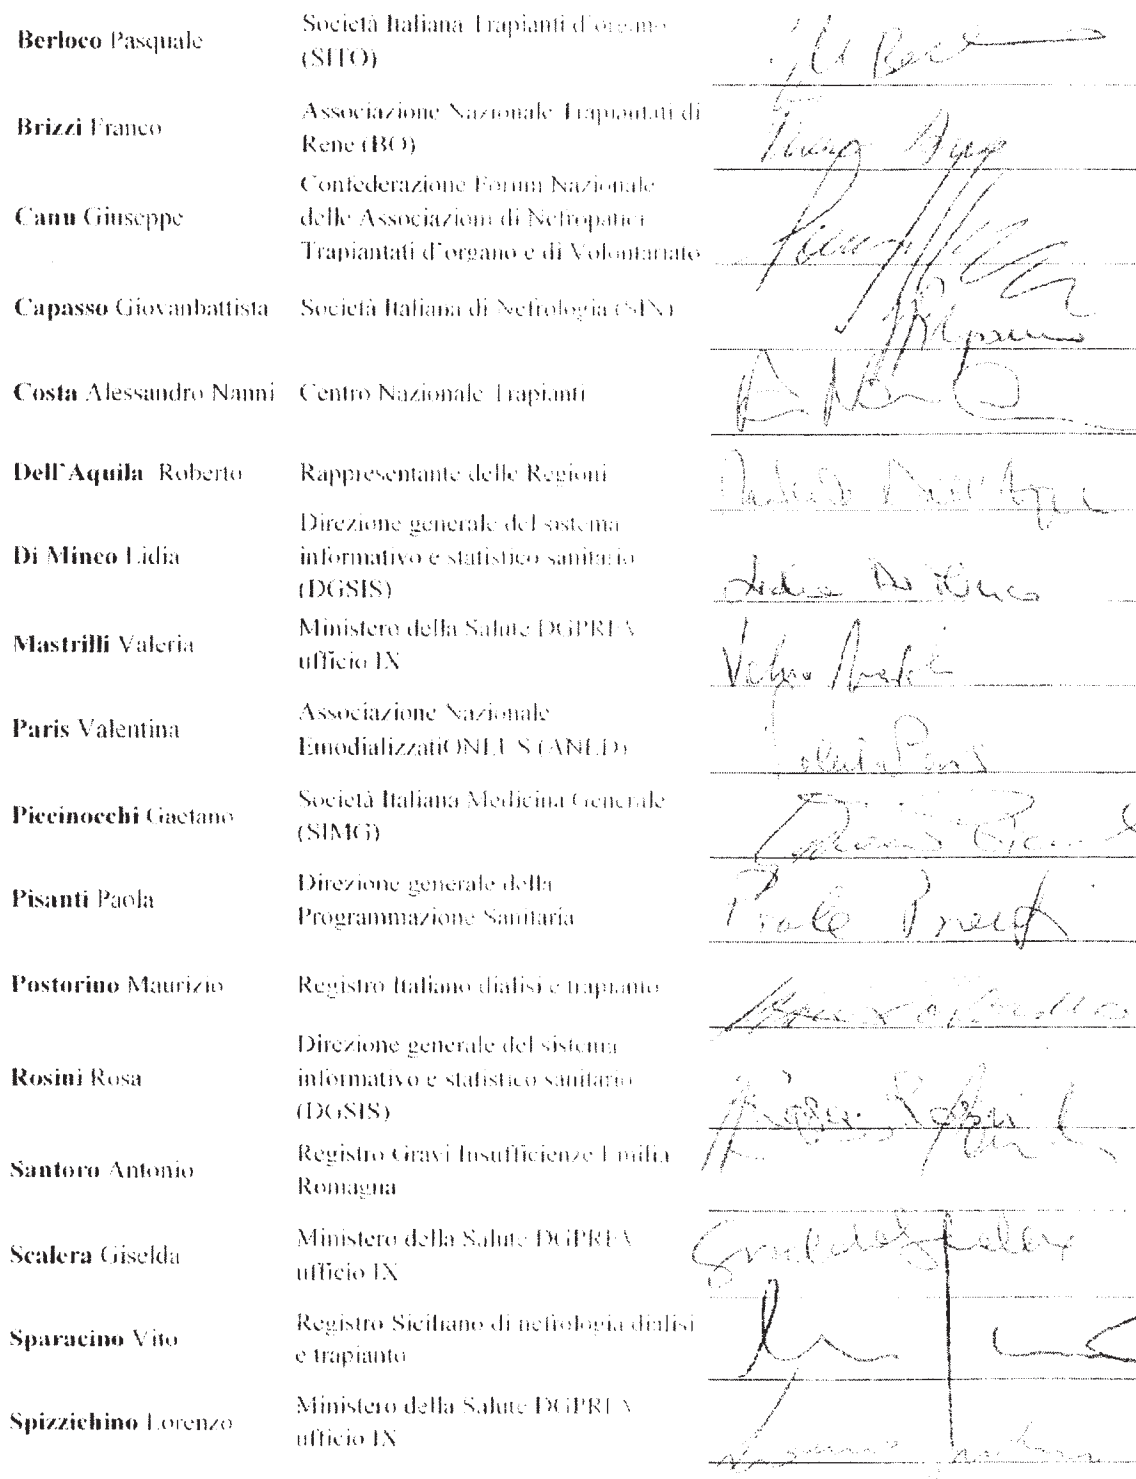 Berloco Pasquale
Società Italiana Trapianti d'organo
(SITO)
Brizzi Franco
Associazione Nazionale Trapiantati di
Rene (BO)
Canu Giuseppe
Confederazione Forum Nazionale
delle Associazioni di Nefropatici
Trapiantati d'organo e di Volontariato
Capasso Giovanbattista
Società Italiana di Nefrologia (SIN)
Costa Alessandro Nanni
Centro Nazionale Trapianti
Dell'Aquila Roberto
Rappresentante delle Regioni
Di Minco Lidia
Direzione generale del sistema
informativo e statistico sanitario
(DGSIS)
Lidia Di Minco
Mastrilli Valeria
Ministero della Salute DGPREV
ufficio IX
Paris Valentina
Associazione Nazionale
EmodializzatiONLUS (ANED)
Piccinocchi Gaetano
Società Italiana Medicina Generale
(SIMG)
Pisanti Paola
Direzione generale della
Programmazione Sanitaria
Postorino Maurizio
Registro Italiano dialisi e trapianto
Rosini Rosa
Direzione generale del sistema
informativo e statistico sanitario
(DGSIS)
Santoro Antonio
Registro Gravi Insufficienze Emilia
Romagna
Scalera Giselda
Ministero della Salute DGPREV
ufficio IX
Sparacino Vito
Registro Siciliano di nefrologia dialisi
e trapianto
Spizzichino Lorenzo
Ministero della Salute DGPREV
ufficio IX